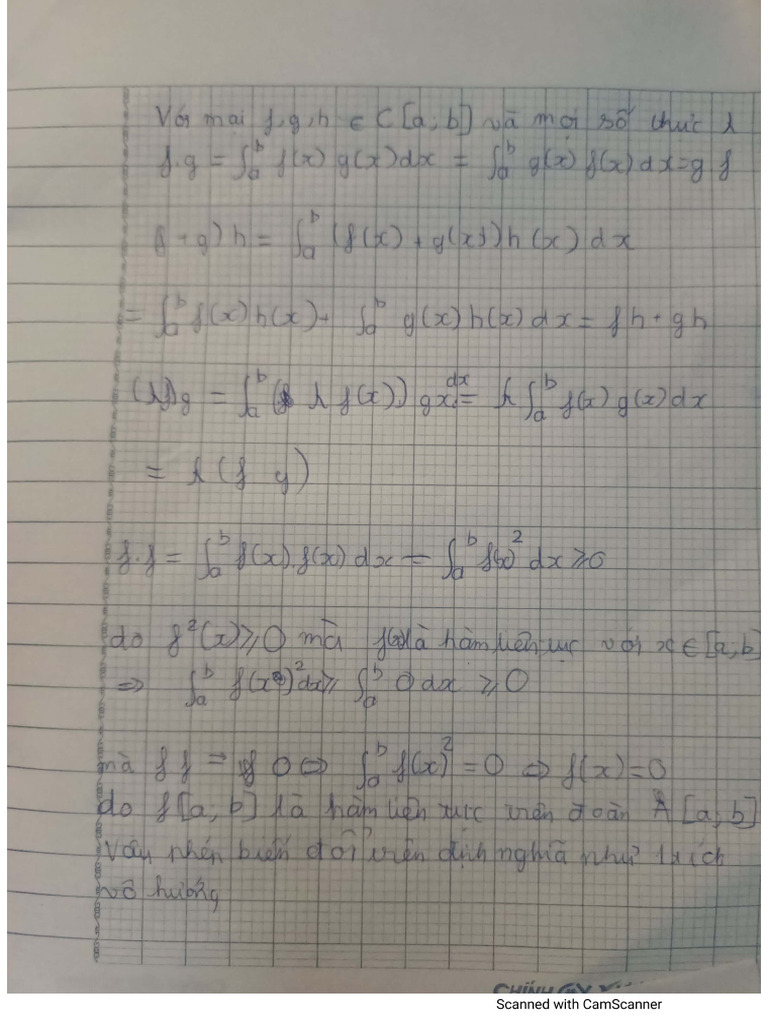 Với mọi f, g, h ∈ C[a, b] và mọi số thực λ
f.g = ∫_a^b f(x) g(x) dx = ∫_a^b g(x) f(x) dx = g f
f + g) h = ∫_a^b (f(x) + g(x)) h(x) dx
= ∫_a^b f(x) h(x) + ∫_a^b g(x) h(x) dx = f h + g h
(λf)g = ∫_a^b (λ f(x)) gx dx = λ ∫_a^b f(x) g(x) dx
= λ (f g)
f.f = ∫_a^b f(x).f(x) dx = ∫_a^b f(x)² dx ≥ 0
do f²(x) ≥ 0 mà f(x) là hàm liên tục với x ∈ [a, b]
⇒ ∫_a^b f(x)² dx ≥ ∫_a^b 0 dx ≥ 0
mà f f = 0 ⇔ ∫_a^b f(x)² = 0 ⇔ f(x) = 0
do f[a, b] là hàm liên tục trên đoàn [a, b]
Vậy phép biến đổi trên định nghĩa như 1 tích
vô hướng
Scanned with CamScanner